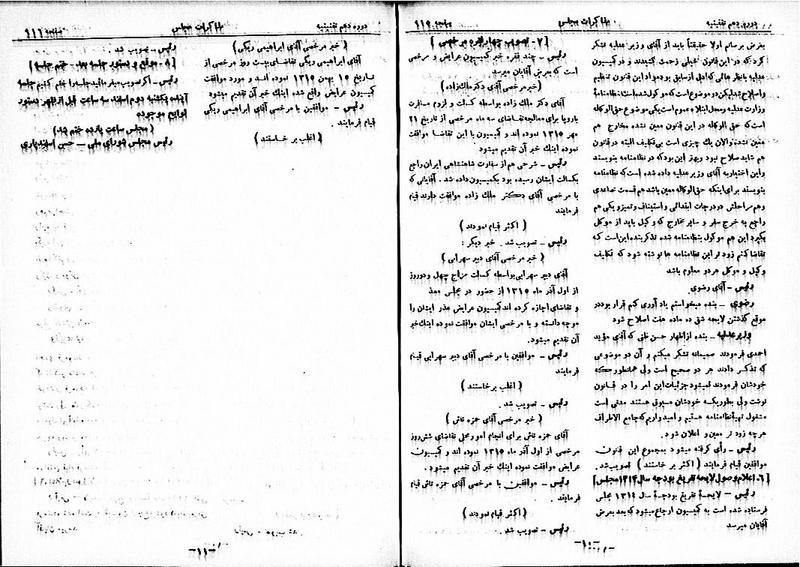 دوره دهم تقنینیه
مذاکرات مجلس
صفحه ۱۱۰
بعرض برسانم اولا حقیقتاً باید از آقای وزیر عدلیه تشکر
کرد که در این قانون خیلی زحمت کشیدند و در کمیسیون
وزارت عدلیه و محل ابتلاء عموم است یکی موضوع حق الوکاله
است که حق الوکاله در این قانون معین نشده مخارج هم
معین نشده و الان یک چیزی است بی تکلیف البته در قانون
هم شاید صلاح نبود و بهتر این بود که در نظامنامه بنویسند
و این اختیار به آقای وزیر عدلیه داده شده است که نظامنامه
بنویسند برای اینکه حق الوکاله معین باشد هم قسمت تصاعدی
و هم مراحلش در درجات ابتدائی و استیناف و تمیز و یکی هم
راجع به خرج سفر و سایر مخارج که وکیل باید از موکل
بگیرد این هم موکول بنظامنامه شده تذکر بنده این است که
تقاضا کنم زودتر این نظامنامه ها نوشته شود که تکلیف
وکیل و موکل هر دو معلوم باشد
رئیس – آقای رضوی
رضوی – بنده میخواستم یادآوری کنم قرار بود در
موقع گذشتن لایحه شق ده ماده هفت اصلاح شود
وزیر عدلیه – بنده از اظهار حسن ظنی که آقای مؤید
احمدی فرمودند صمیمانه تشکر میکنم و آن دو موضوعی
که تذکر دادند هر دو صحیح است ولی همانطور که
خودشان فرمودند نمیشود جزئیات این امر را در قانون
نوشت ولی بطوریکه خودشان مسبوق هستند مدتی است
مشغول تهیه نظامنامه هستیم و امیدواریم که جامع الاطراف
هر چه زودتر معین و اعلان شود.
رئیس – رأی گرفته میشود بمجموع این قانون
موافقین قیام فرمایند (اکثر برخاستند) تصویب شد.
رئیس – لایحهٔ تفریغ بودجهٔ سال ۱۳۱۴ مجلس
فرستاده شده است به کمیسیون ارجاع میشود که بعد بعرض
آقایان میرسد
[۷ – تصویب چهار فقره مرخصی]
رئیس – چند فقره خبر کمیسیون عرایض و مرخصی
است که بعرض آقایان میرسد
(خبر مرخصی آقای دکتر ملک زاده)
آقای دکتر ملک زاده بواسطه کسالت و لزوم مسافرت
باروپا برای معالجه تقاضای سه ماه مرخصی از تاریخ ۲۱
مهر ۱۳۱۵ نموده اند و کمیسیون با این تقاضا موافقت
نموده اینک خبر آن تقدیم میشود
رئیس – شرحی هم از سفارت شاهنشاهی ایران راجع
بکسالت ایشان رسیده بود بکمیسیون داده شد. آقایانی که
با مرخصی آقای دکتر ملک زاده موافقت دارند قیام
فرمایند
(اکثر قیام نمودند)
رئیس – تصویب شد. خبر دیگر:
(خبر مرخصی آقای دبیر سهرابی)
آقای دبیر سهرابی بواسطه کسالت مزاج چهل و دو روز
از اول آذر ماه ۱۳۱۵ از حضور در مجلس معذور
و تقاضای اجازه کرده اند کمیسیون عرایض عذر ایشان را
موجه دانسته و با مرخصی ایشان موافقت نموده اینک خبر
آن تقدیم میشود.
رئیس – موافقین با مرخصی آقای دبیر سهرابی قیام
فرمایند
(اغلب برخاستند)
رئیس – تصویب شد.
(خبر مرخصی آقای حمزه تاش)
آقای حمزه تاش برای انجام امور محلی تقاضای شش روز
مرخصی از اول آذر ماه ۱۳۱۵ نموده اند و کمیسیون
عرایض موافقت نموده اینک خبر آن تقدیم میشود.
رئیس – موافقین با مرخصی آقای حمزه تاش قیام
فرمایند.
(اکثر قیام نمودند)
رئیس – تصویب شد.
–۱۰–
دوره دهم تقنینیه
مذاکرات مجلس
صفحه ۱۱۱
(خبر مرخصی آقای ابراهیمی ریگی)
آقای ابراهیمی ریگی تقاضای بیست روز مرخصی از
تاریخ ۱۵ بهمن ۱۳۱۵ نموده اند و مورد موافقت
کمیسیون عرایض واقع شده اینک خبر آن تقدیم میشود
رئیس – موافقین با مرخصی آقای ابراهیمی ریگی
قیام فرمایند.
(اغلب برخاستند)
رئیس – تصویب شد.
[۸ – موقع و دستور جلسه بعد – ختم جلسه]
رئیس – اگر تصویب میفرمائید جلسه را ختم کنیم جلسه
آینده یکشنبه دوم اسفند سه ساعت قبل از ظهر دستور
لوایح موجوده
(مجلس ساعت یازده ختم شد)
رئیس مجلس شورای ملی – حسن اسفندیاری
–۱۱–